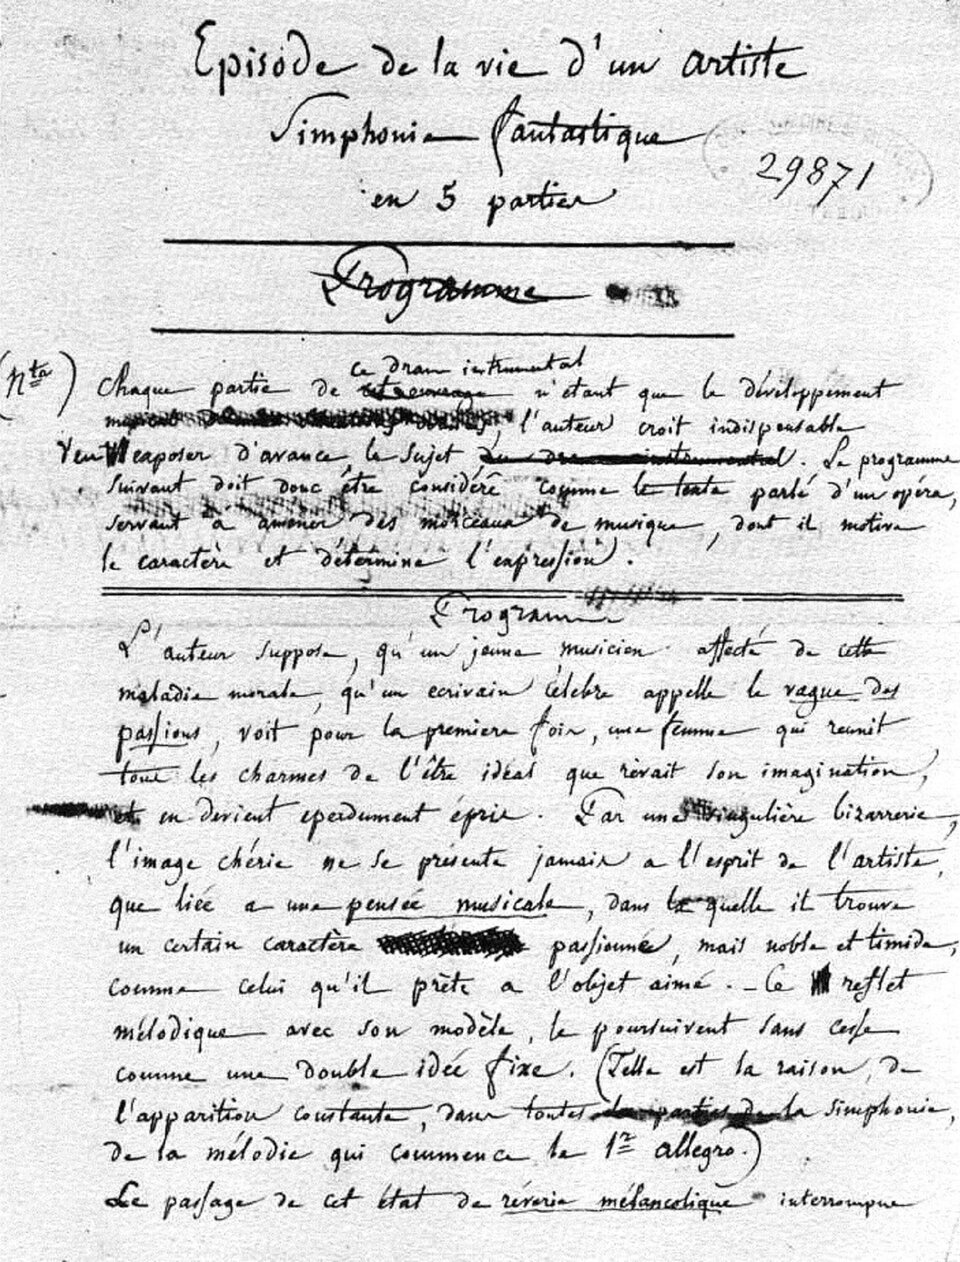 Episode de la vie d'un artiste
Simphonie fantastique
29871
en 5 parties
Programme
(Nta) Chaque partie de ce drame instrumental n'étant que le développement
l'auteur croit indispensable
exposer d'avance le sujet du drame instrumental. Le programme
suivant doit donc être considéré comme le texte parlé d'un opéra,
servant à amener des morceaux de musique, dont il motive
le caractère et détermine l'expression.
Programme
L'auteur suppose, qu'un jeune musicien affecté de cette
maladie morale, qu'un ecrivain célèbre appelle le vague des
passions, voit pour la premiere fois, une femme qui reunit
tous les charmes de l'être idéal que rêvait son imagination,
et en devient eperdument épris. Par une singulière bizarrerie,
l'image chérie ne se présente jamais a l'esprit de l'artiste,
que liée a une pensée musicale, dans la quelle il trouve
un certain caractère passionné, mais noble et timide,
comme celui qu'il prète a l'objet aimé. - Ce reflet
mélodique avec son modèle, le poursuivent sans cesse
comme une double idée fixe. (Telle est la raison, de
l'apparition constante, dans toutes les parties de la simphonie,
de la mélodie qui commence le 1er allegro.)
Le passage de cet état de rêverie mélancolique interrompue